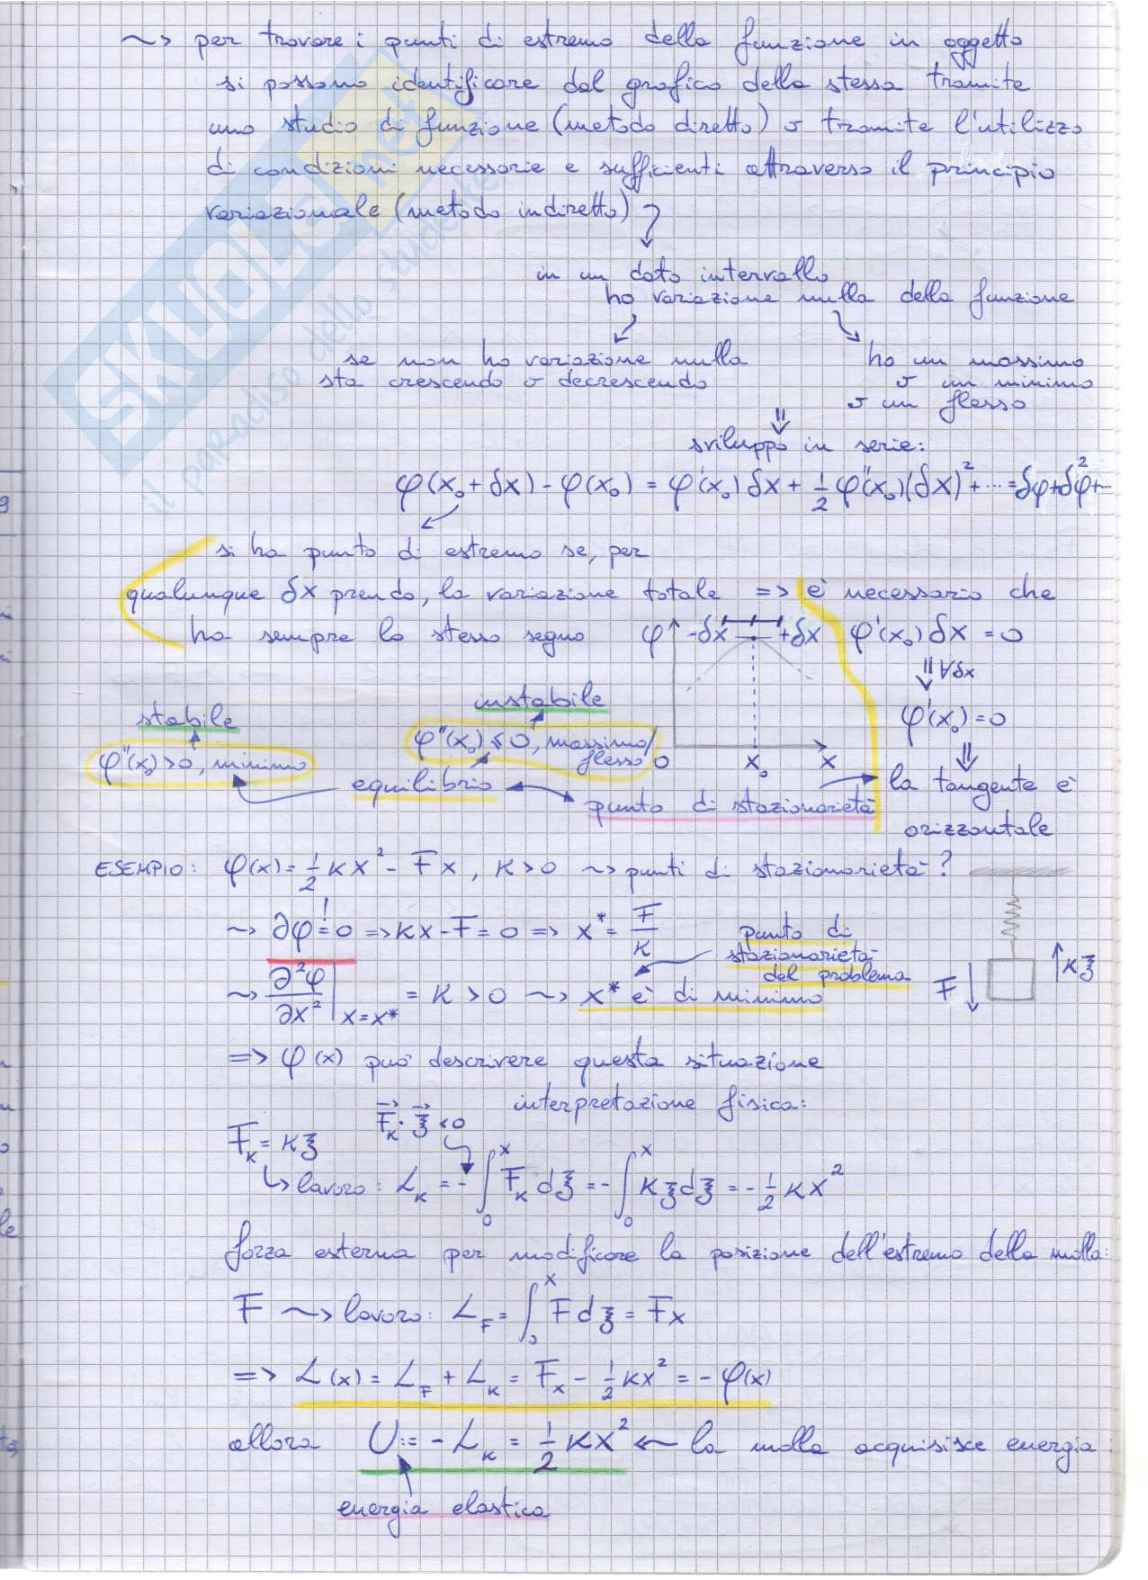 ~> per trovare i punti di estremo della funzione in oggetto
si possono identificare dal grafico della stessa tramite
uno studio di funzione (metodo diretto) o tramite l'utilizzo
di condizioni necessarie e sufficienti attraverso il principio
variazionale (metodo indiretto)
in un dato intervallo
ho variazione nulla della funzione
se non ho variazione nulla
sta crescendo o decrescendo
ho un massimo
o un minimo
o un flesso
⇓
sviluppo in serie:
φ(x₀+δx) - φ(x₀) = φ'(x₀)δx + 1/2 φ''(x₀)(δx)² + ... = δφ+δ²φ+...
si ha punto di estremo se, per
qualunque δx prendo, la variazione totale => è necessario che
ha sempre lo stesso segno
φ -δx +δx
φ'(x₀)δx = 0
⇓ ∀δx
φ'(x₀) = 0
⇓
la tangente è
orizzontale
0 x₀ x
stabile
φ''(x₀) > 0, minimo
instabile
φ''(x₀) ≤ 0, massimo/
flesso
equilibrio
punto di stazionarietà
ESEMPIO: φ(x) = 1/2 Kx² - Fx, K>0 ~> punti di stazionarietà?
~> ∂φ != 0 => Kx-F = 0 => x* = F/K
punto di
stazionarietà
del problema
~> ∂²φ/∂x² |x=x* = K > 0 ~> x* è di minimo
F Kξ
=> φ(x) può descrivere questa situazione
interpretazione fisica:
F_K · ξ < 0
F_K = Kξ
↳ lavoro: L_K = -∫₀ˣ F_K dξ = -∫₀ˣ Kξdξ = -1/2 Kx²
forza esterna per modificare la posizione dell'estremo della molla:
F ~> lavoro: L_F = ∫₀ˣ F dξ = Fx
=> L(x) = L_F + L_K = Fx - 1/2 Kx² = -φ(x)
allora U := -L_K = 1/2 Kx² ← la molla acquisisce energia
energia elastica
SKUOLA.net
il paradiso dello studente